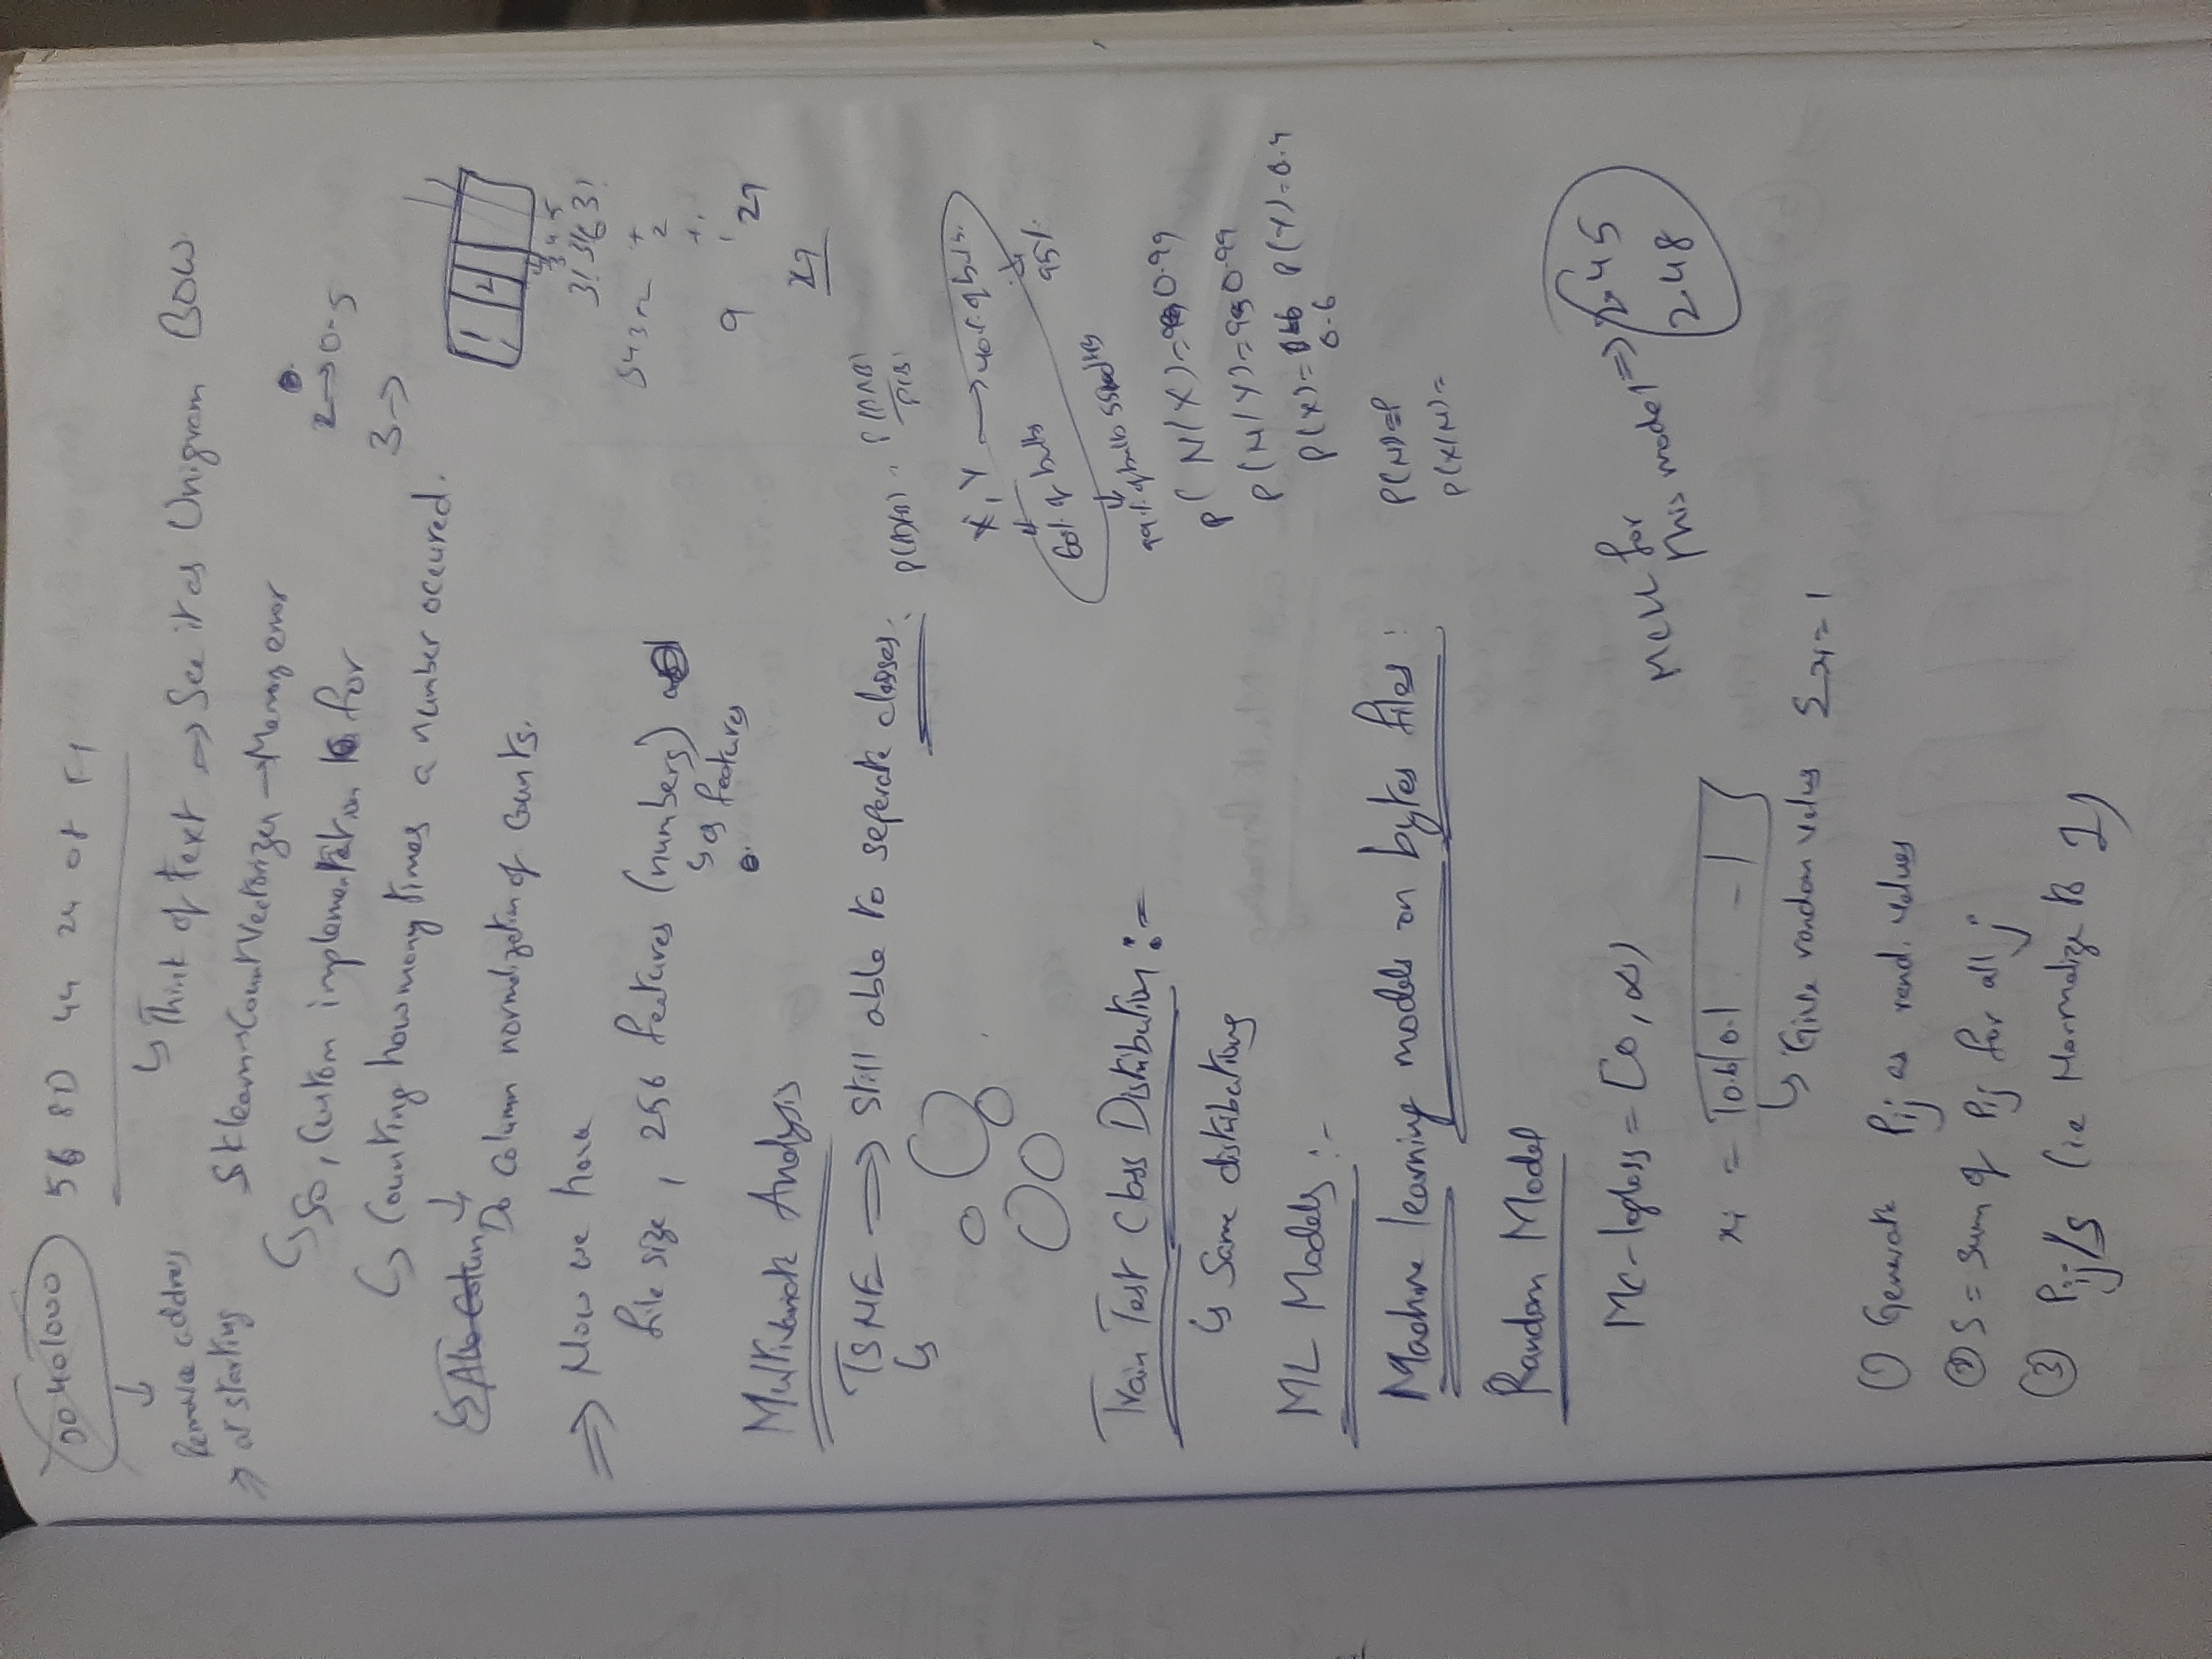 00401000 56 8D 44 24 08 51
↓
Remove address
⇒ at starting
↳ Think of text ⇒ See it as Unigram BOW
Sklearn→CountVectorizer → Memory error
↳ So, Custom implementation for
↳ Counting how many times a number occured.
↓
Do column normalization of counts.
⇒ Now we have
file size, 256 features (numbers)
↳ as features
Multivariate Analysis
TSNE ⇒ still able to seperate classes.
↳
Train Test Class Distribution :-
↳ Same distributions
ML Models :-
Machine learning models on bytes files :
Random Model
Mc-logloss = [0, ∞)
MCLL for
this model ⇒ 2.45
2.48
xi = 0.6 | 0.1 - |
↳ Give random values Σxi = 1
① Generate Pij as rand. values
② S = sum of Pij for all j
③ Pij/S (ie Normalize to 1)
2 → 0.5
3 →
1 2
3 4 5
3! 3! 6 3!
+
2
+
9 27
P(A|B) = P(A∩B)
P(B)
X, Y → 40% of bulbs
60% of bulbs 95%
99% of bulbs
P(N/X) = 0.99
P(N/Y) = 0.99
P(X) = P(Y) = 0.4
0.6
P(N) = P
P(X/N) =